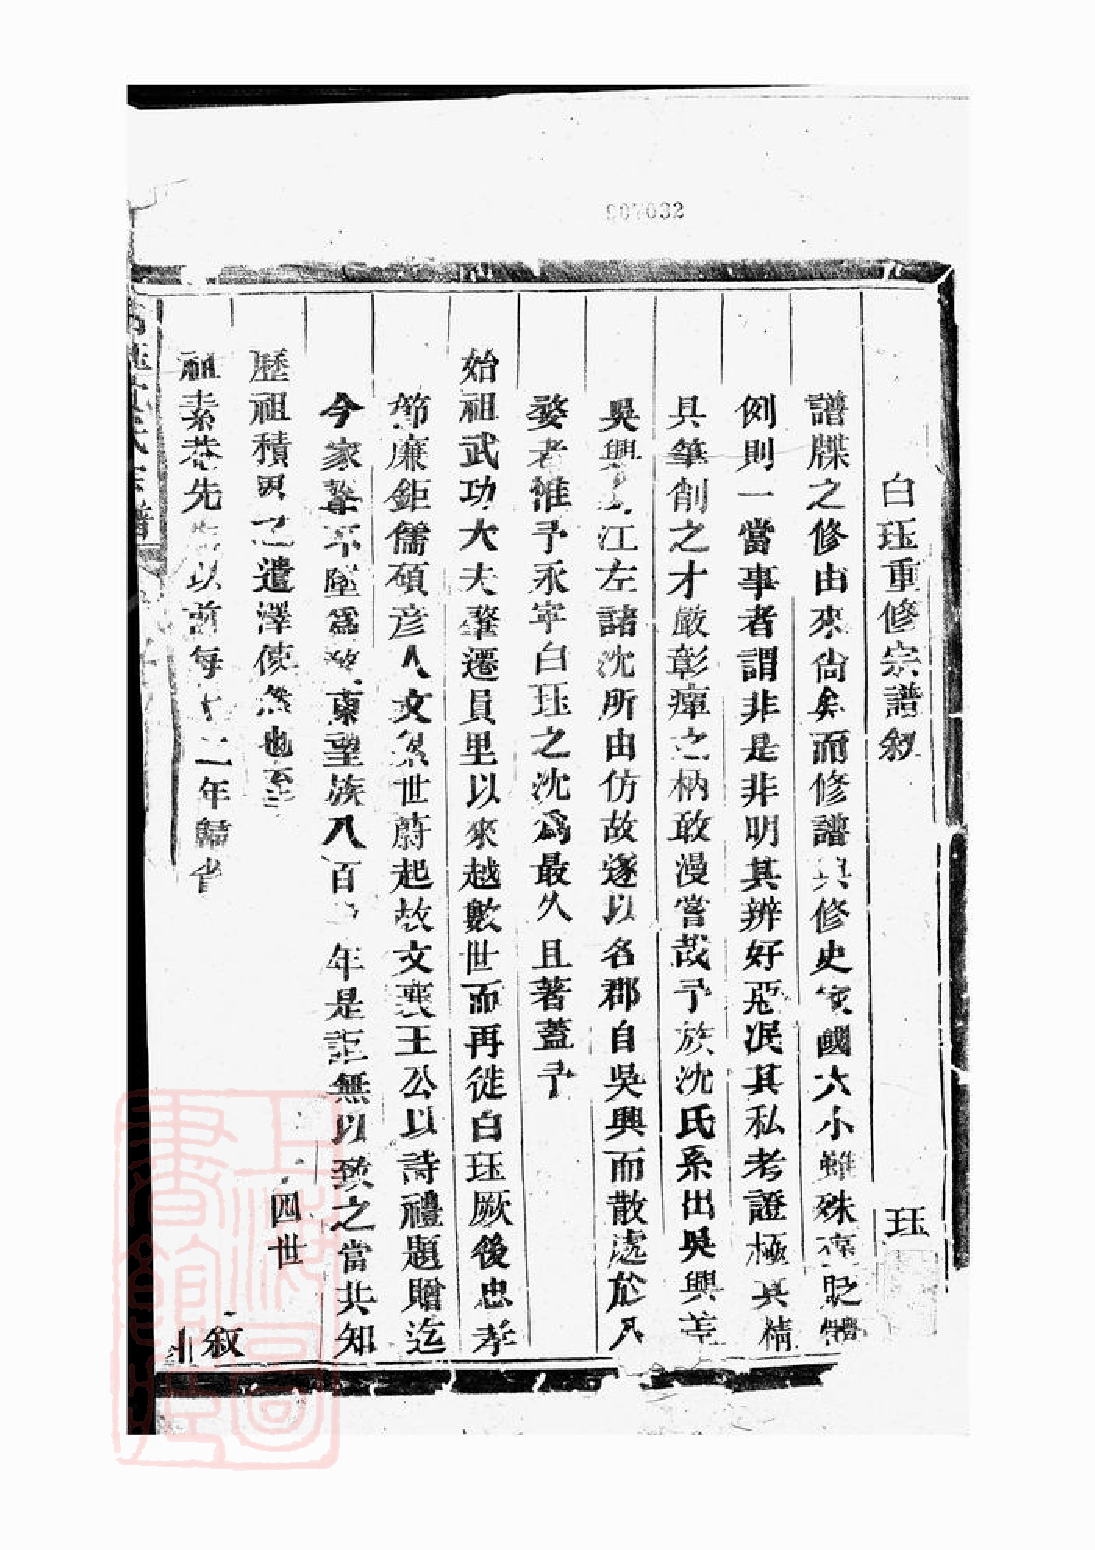 007032
白珏重修宗譜叙
珏
譜牒之修由來尚矣而修譜與修史家國大小雖殊凜貶體
例則一當事者謂非是非明其辨好惡泯其私考證極其精
具筆削之才嚴彰癉之柄敢漫嘗哉予族沈氏系出吳興善
吳興江左諸沈所由仿故遂以名郡自吳興而散處於
婺者惟予永寧白珏之沈爲最久且著蓋予
始祖武功大夫肇遷員里以來越數世而再徙白珏厥後忠孝
節廉鉅儒碩彥人文累世蔚起故文襄王公以詩禮題贈迄
今家聲不墜爲婺東望族八百年是詎無以致之當共知
歷祖積累之遺澤使然也至
四世
祖素菴先生以前每十二年歸省
叙
上海圖書館藏